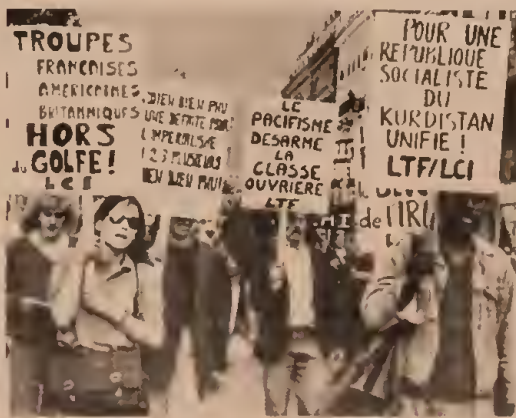 TROUPES
FRANÇAISES
AMERICAINES
BRITANNIQUES
HORS
du GOLFE!
DIEN BIEN PHU
UNE DEFAITE POUR
L'IMPERIALISME
1 2 3 PLUSIEURS
DIEN BIEN PHU
LE
PACIFISME
DESARME
LA
CLASSE
OUVRIERE
LTF
POUR UNE
REPUBLIQUE
SOCIALISTE
DU
KURDISTAN
UNIFIE !
LTF/LCI
de l'IR